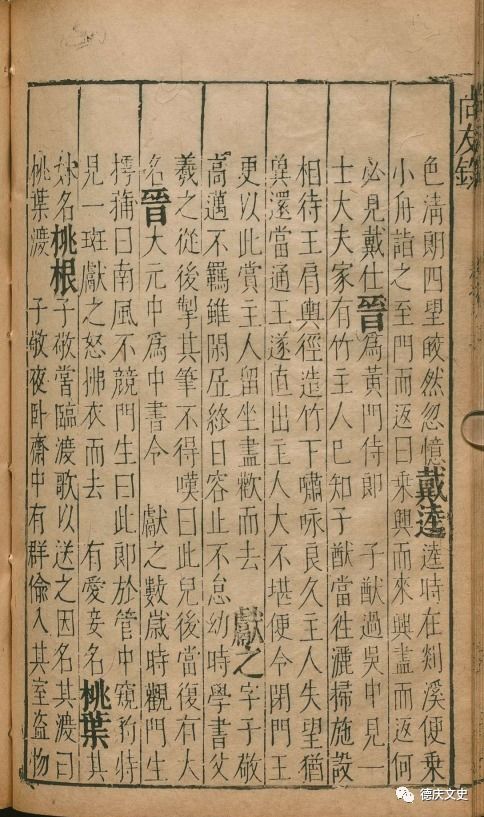 尚友錄
色淸朗四望皎然忽憶戴逵逵時在剡溪便乘
小舟詣之至門而返曰乘興而來興盡而返何
必見戴仕晉爲黃門侍郎　子猷過吳中見一
士大夫家有竹主人已知子猷當徃灑掃施設
相待王肩輿徑造竹下嘯咏良久主人失望猶
兾還當通王遂直出主人大不堪便令閉門王
更以此賞主人留坐盡歡而去　獻之字子敬
高邁不羈雖閑居終日容止不怠幼時學書父
羲之從後掣其筆不得嘆曰此兒後當復有大
名晉大元中爲中書令　獻之數歲時觀門生
摴蒱曰南風不競門生曰此郎於管中窺豹特
見一斑獻之怒拂衣而去　有愛妾名桃葉其
妹名桃根子敬嘗臨渡歌以送之因名其渡曰
桃葉渡　子敬夜卧齋中有群偷入其室盜物
德庆文史